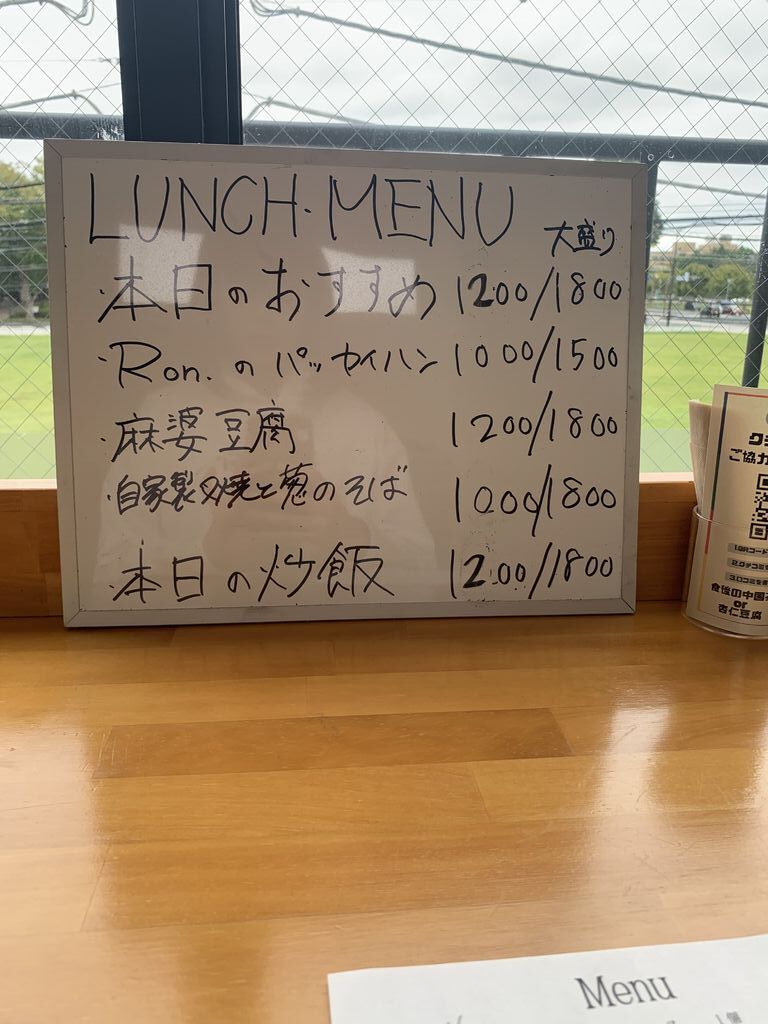 LUNCH・MENU
大盛り
・本日のおすすめ 1200/1800
・Ron.のパッカイハン 1000/1500
・麻婆豆腐 1200/1800
・自家製叉焼と葱のそば 1000/1800
・本日の炒飯 1200/1800
ご協力
1.QRコード
2.クチコミを
3.口コミを
食後の中国茶
or
杏仁豆腐
Menu
1個